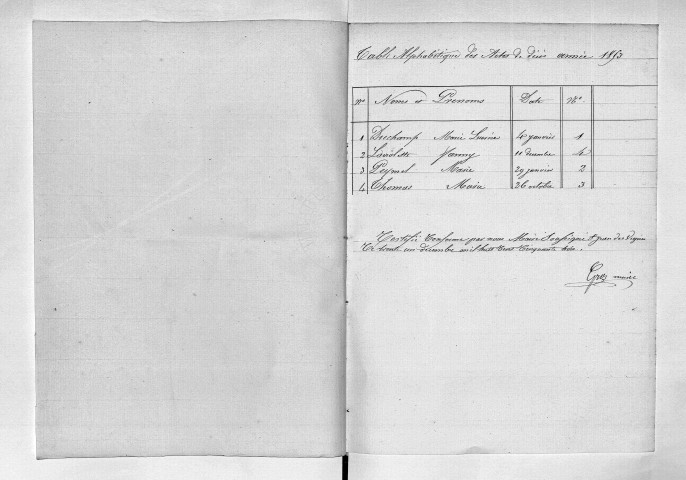 Table Alphabétique des Actes de décès année 1853
Nos Noms et Prénoms Date No
1 Deschamp Marie 4 janvier 1
2 Laviolette Fanny 11 décembre 4
3 Peymel Marie 29 janvier 2
4 Thomas Marie 26 octobre 3
Certifié Conforme par nous Maire Soussigné St Jean des
Ce trente un décembre mil huit Cent Cinquante trois.
maire